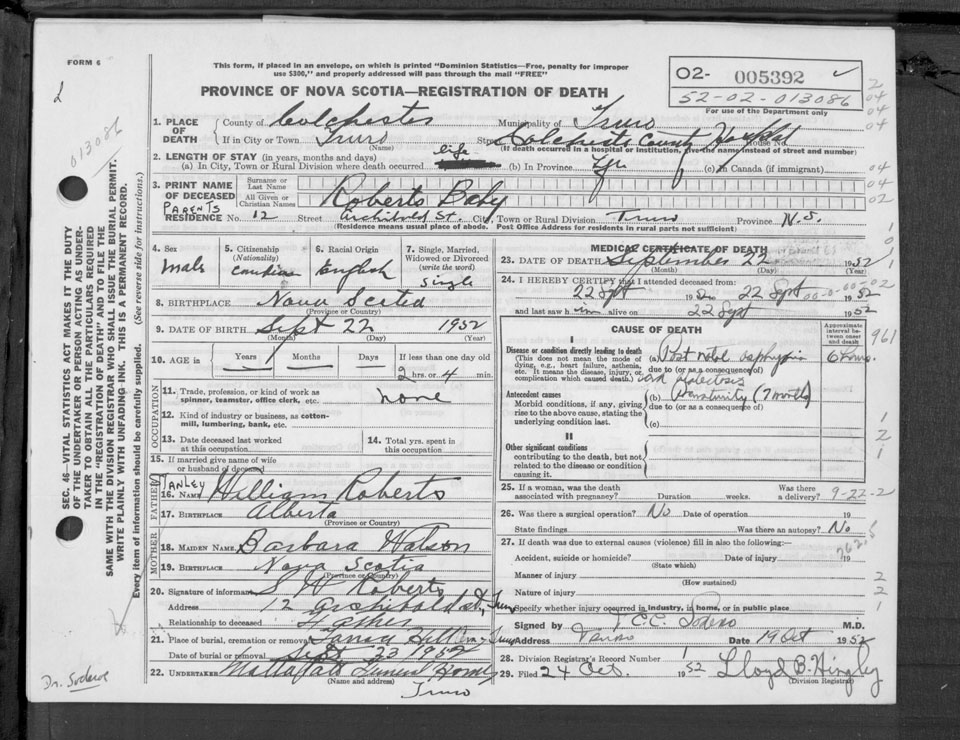 FORM 6
This form, if placed in an envelope, on which is printed "Dominion Statistics—Free, penalty for improper
use $300," and properly addressed will pass through the mail "FREE"
PROVINCE OF NOVA SCOTIA—REGISTRATION OF DEATH
O2- 005392
52-02-013086
For use of the Department only
013086
SEC. 46—VITAL STATISTICS ACT MAKES IT THE DUTY
OF THE UNDERTAKER OR PERSON ACTING AS UNDER-
TAKER TO OBTAIN ALL THE PARTICULARS REQUIRED
IN THE "REGISTRATION OF DEATH" AND TO FILE THE
SAME WITH THE DIVISION REGISTRAR WHO SHALL ISSUE THE BURIAL PERMIT.
WRITE PLAINLY WITH UNFADING INK. THIS IS A PERMANENT RECORD.
Every item of information should be carefully supplied. (See reverse side for instructions.)
1. PLACE OF DEATH
County of Colchester Municipality of Truro
If in City or Town Truro Street Colchester County Hospital House No.
(Name) (If death occurred in a hospital or institution, give the name instead of street and number)
2. LENGTH OF STAY (in years, months and days)
(a) In City, Town or Rural Division where death occurred life (b) In Province Yes (c) in Canada (if immigrant)
3. PRINT NAME OF DECEASED
Surname or Last Name
All Given or Christian Names
Roberts Baby
PARENTS
RESIDENCE No. 12 Street Archibald St. City, Town or Rural Division Truro Province N.S.
(Residence means usual place of abode. Post Office Address for residents in rural parts not sufficient)
4. Sex
Male
5. Citizenship
(Nationality)
Canadian
6. Racial Origin
English
7. Single, Married,
Widowed or Divorced
(write the word)
Single
8. BIRTHPLACE Nova Scotia
(Province or Country)
9. DATE OF BIRTH Sept 22 1952
(Month) (Day) (Year)
10. AGE in Years Months Days If less than one day old
2 hrs. or 4 min.
OCCUPATION
11. Trade, profession, or kind of work as
spinner, teamster, office clerk, etc. none
12. Kind of industry or business, as cotton-
mill, lumbering, bank, etc.
13. Date deceased last worked
at this occupation
14. Total yrs. spent in
this occupation
15. If married give name of wife
or husband of deceased
FATHER
16. NAME William Roberts
17. BIRTHPLACE Alberta
(Province or Country)
MOTHER
18. MAIDEN NAME Barbara Watson
19. BIRTHPLACE Nova Scotia
(Province or Country)
20. Signature of informant S W Roberts
Address 12 Archibald St, Truro
Relationship to deceased Father
21. Place of burial, cremation or removal
Date of burial or removal Sept 23 1952
22. UNDERTAKER Mattatall's Funeral Home
(Name and address)
Truro
MEDICAL CERTIFICATE OF DEATH
23. DATE OF DEATH September 22 1952
(Month) (Day) (Year)
24. I HEREBY CERTIFY that I attended deceased from:
22 Sept 1952 to 22 Sept 1952
and last saw him alive on 22 Sept 1952
CAUSE OF DEATH
Approximate interval between onset and death
I
Disease or condition directly leading to death
(This does not mean the mode of
dying, e.g., heart failure, asthenia,
etc. It means the disease, injury, or
complication which caused death.)
(a) Post natal asphyxia
due to (or as a consequence of)
Antecedent causes
Morbid conditions, if any, giving
rise to the above cause, stating the
underlying condition last.
(b) Prematurity (7 months)
due to (or as a consequence of)
(c)
II
Other significant conditions
contributing to the death, but not
related to the disease or condition
causing it.
25. If a woman, was the death
associated with pregnancy? Duration weeks. Was there
a delivery? 9-22-2
26. Was there a surgical operation? No Date of operation 19
State findings Was there an autopsy? No
27. If death was due to external causes (violence) fill in also the following:—
Accident, suicide or homicide? Date of injury 19
(State which)
Manner of injury
(How sustained)
Nature of injury
Specify whether injury occurred in industry, in home, or in public place
Signed by M.D.
Address Truro Date 19 Oct 1952
28. Division Registrar's Record Number
29. Filed 24 Oct. 1952 Lloyd B. Hingley
(Division Registrar)